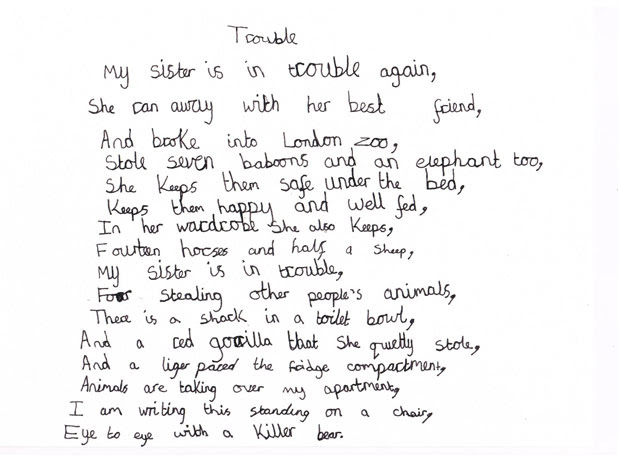 Trouble
My sister is in trouble again,
She ran away with her best friend,
And broke into London zoo,
Stole seven baboons and an elephant too,
She keeps them safe under the bed,
Keeps them happy and well fed,
In her wardrobe She also keeps,
Fourteen horses and half a sheep,
My sister is in trouble,
For stealing other people's animals,
There is a shark in a toilet bowl,
And a red gorilla that She quietly stole,
And a liger paced the fridge compartment,
Animals are taking over my apartment,
I am writing this standing on a chair,
Eye to eye with a Killer bear.